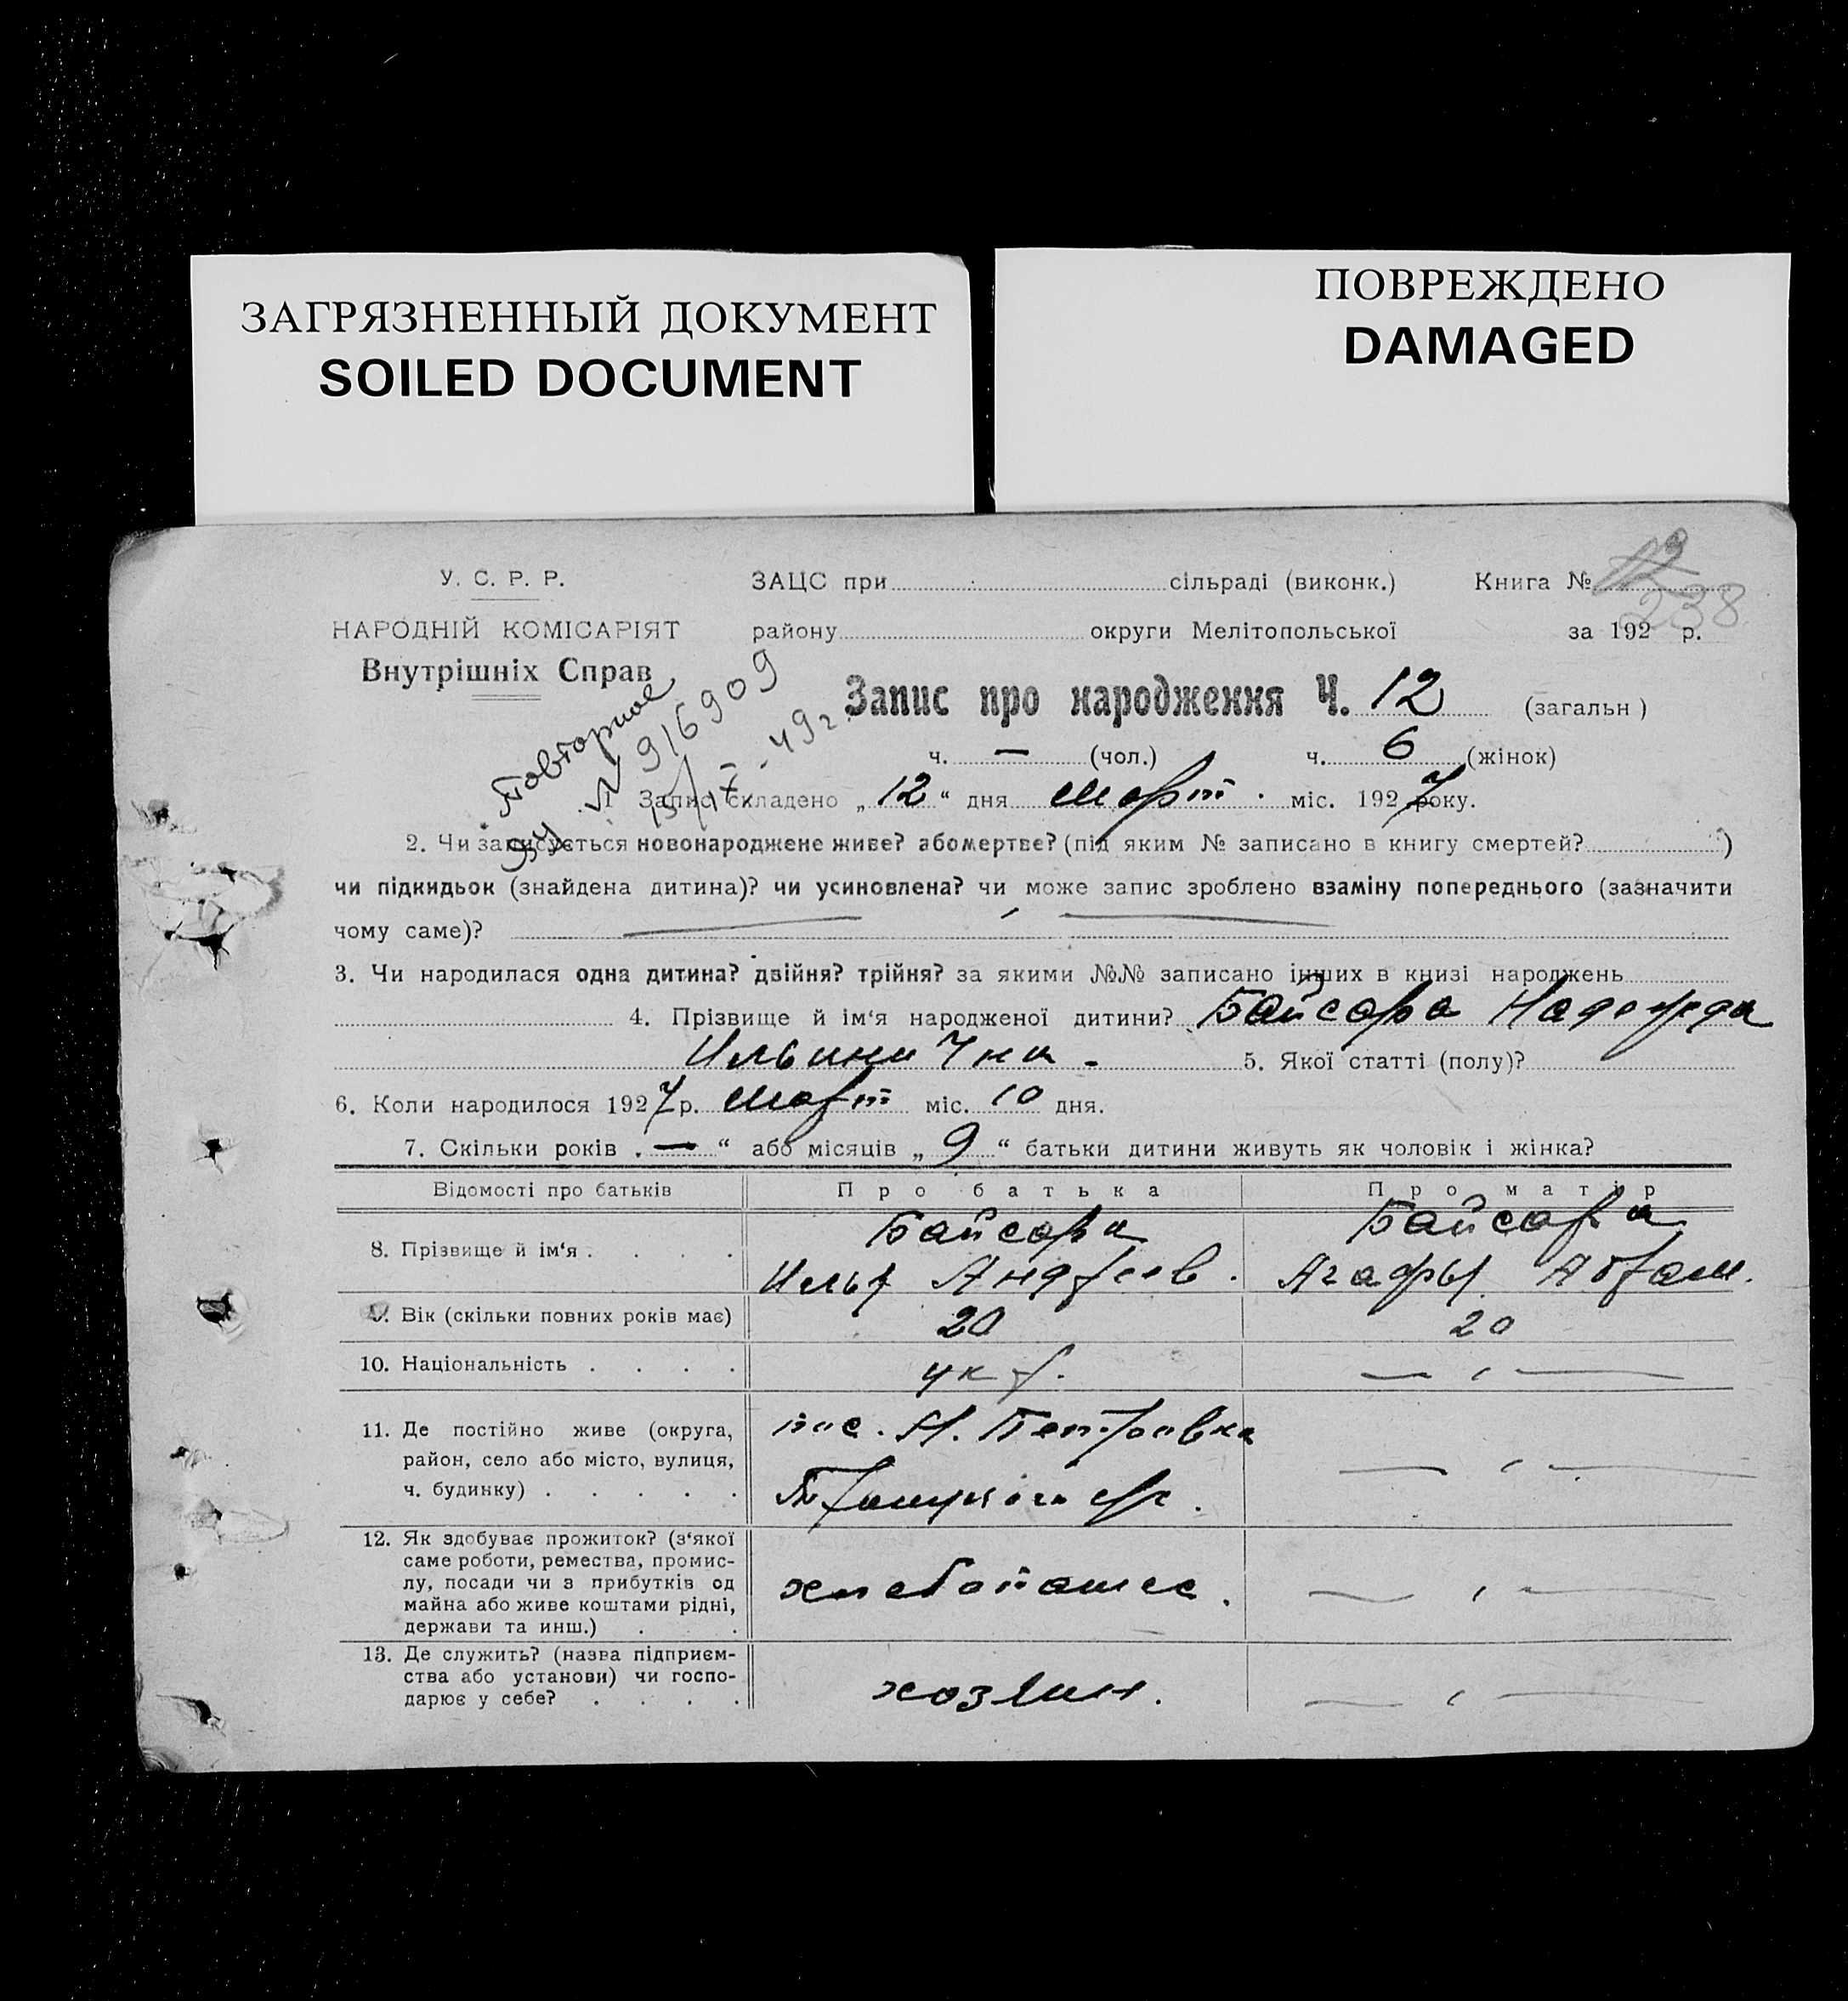 ЗАГРЯЗНЕННЫЙ ДОКУМЕНТ
SOILED DOCUMENT
ПОВРЕЖДЕНО
DAMAGED
У. С. Р. Р.
НАРОДНІЙ КОМІСАРІЯТ
Внутрішніх Справ
ЗАЦС при сільраді (виконк.) Книга №
238
району округи Мелітопольської за 192 р.
Повторное
№ 916909
49 г.
Запис про народження Ч. 12 (загальн )
ч. — (чол.) ч. 6 (жінок)
1 Запис складено „12“ дня Март. міс. 1927 року.
2. Чи записується новонароджене живе? або мертве? (під яким № записано в книгу смертей? )
чи підкидьок (знайдена дитина)? чи усиновлена? чи може запис зроблено взаміну попереднього (зазначити
чому саме)?
3. Чи народилася одна дитина? двійня? трійня? за якими №№ записано інших в книзі народжень
4. Прізвище й ім‘я народженої дитини? Байсара Надежда
Ильинична. 5. Якої статті (полу)?
6. Коли народилося 1927 р. Март міс. 10 дня.
7. Скільки років „—“ або місяців „9“ батьки дитини живуть як чоловік і жінка?
Відомості про батьків Про батька Про матір
8. Прізвище й ім‘я . . . . Байсара Байсара
Илья Андреев. Агафья Абрам.
9. Вік (скільки повних років має) 20 20
10. Національність . . . . укр. — „ —
11. Де постійно живе (округа,
район, село або місто, вулиця,
ч. будинку) . . . . .
пос. Н. Петровка
— „ —
12. Як здобуває прожиток? (з‘якої
саме роботи, ремества, промис-
лу, посади чи з прибутків од
майна або живе коштами рідні,
держави та инш.) . .
хлебопашес. — „ —
13. Де служить? (назва підприєм-
ства або установи) чи госпо-
дарює у себе? . . . .
хозяин. — „ —